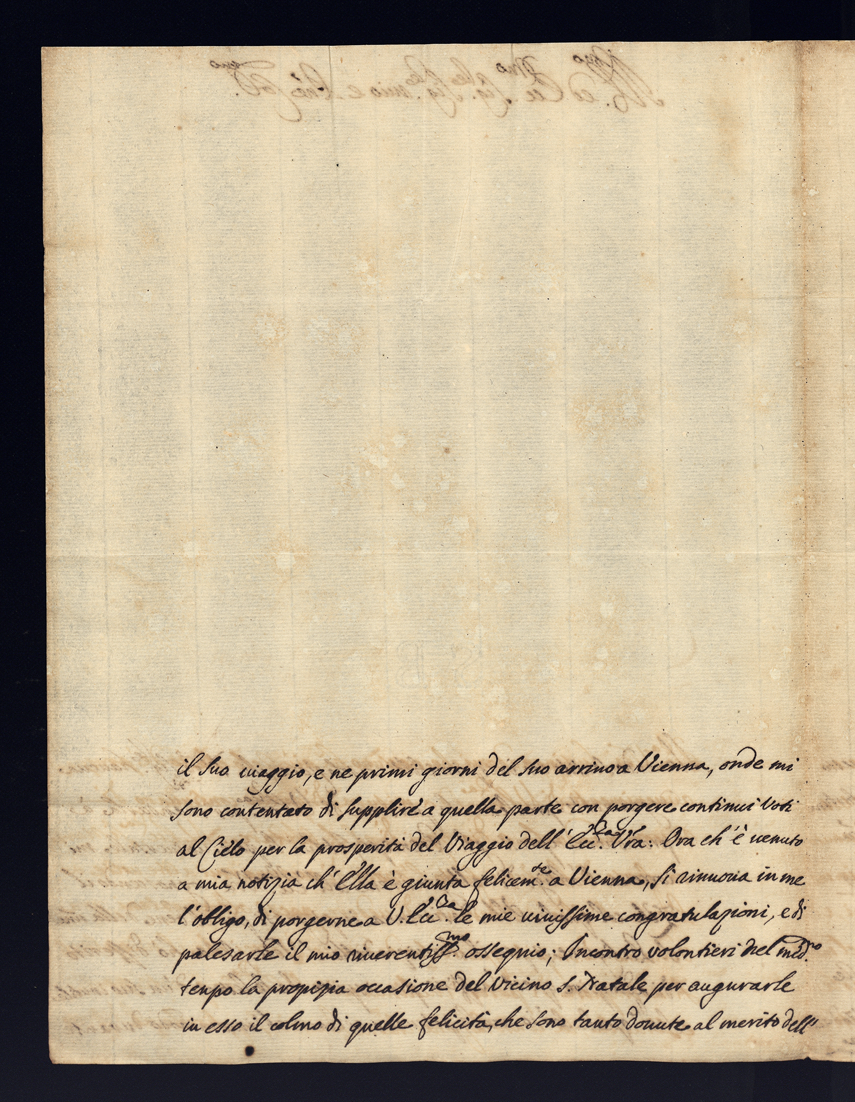 il suo viaggio, e ne primi giorni del suo arrivo a Vienna, onde mi
sono contentato di supplire a quella parte con porgere continui voti
al Cielo per la prosperità del Viaggio dell' Ecc.za Vra: Ora ch' è venuto
a mia notizia ch' Ella è giunta felicem.te a Vienna, si rinuova in me
l'obligo, di porgerne a V. Ecc.za le mie vivissime congratulazioni, e di
palesarle il mio riverentiss.mo ossequio; Incontro volontieri nel med.o
tenpo la propizia occasione del vicino S. Natale per augurarle
in esso il colmo di quelle felicità, che sono tanto dovute al merito dell'